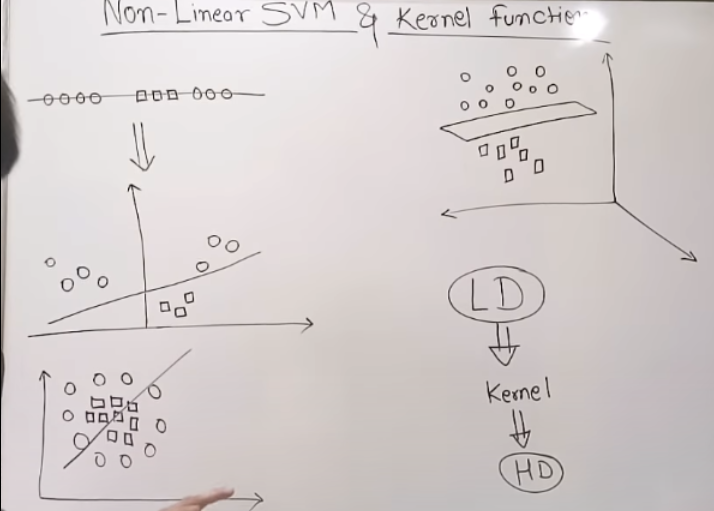 Non-Linear SVM & Kernel function
LD
Kernel
HD